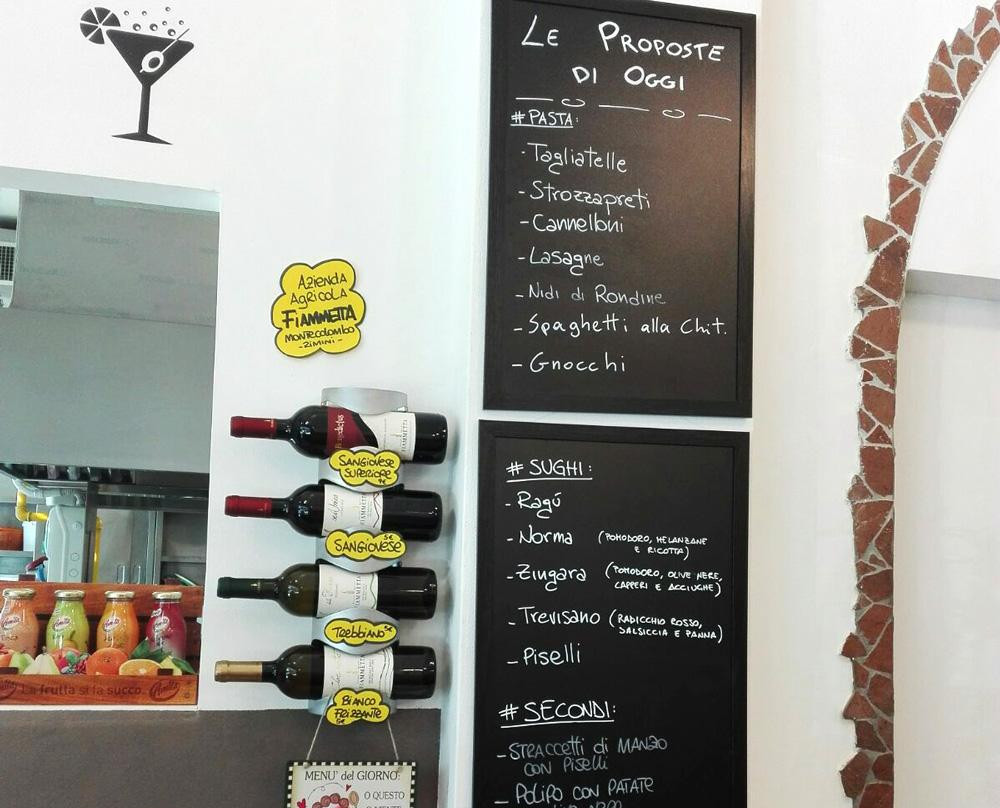 LE PROPOSTE
DI OGGI
# PASTA:
- Tagliatelle
- Strozzapreti
- Cannelloni
- Lasagne
- Nidi di Rondine
- Spaghetti alla Chit.
- Gnocchi
# SUGHI:
- Ragú
- Norma (POMODORO, MELANZANE
E RICOTTA)
- Zingara (POMODORO, OLIVE NERE,
CAPPERI E ACCIUGHE)
- Trevisano (RADICCHIO ROSSO,
SALSICCIA E PANNA)
- Piselli
# SECONDI:
- STRACCETTI di MANZO
CON PISELLI
- POLIPO CON PATATE
AZIENDA
AGRICOLA
FIAMMETTA
MONTECOLOMBO
- RIMINI -
FIAMMETTA
SANGIOVESE
SUPERIORE
FIAMMETTA
SANGIOVESE 5€
FIAMMETTA
Trebbiano 5€
FIAMMETTA
BIANCO
FRIZZANTE
5€
La frutta si fa succo.
MENU' del GIORNO:
O QUESTO